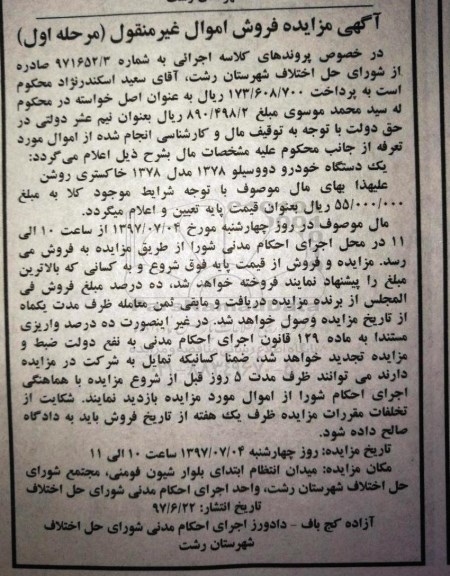 آگهی مزایده فروش اموال غیرمنقول (مرحله اول)
در خصوص پروندهای کلاسه اجرائی به شماره ۹۷۱۶۵۲/۳ صادره
از شورای حل اختلاف شهرستان رشت، آقای سعید اسکندرنژاد محکوم
است به پرداخت ۱۷۳/۶۰۸/۷۰۰ ریال به عنوان اصل خواسته در محکوم
له سید محمد موسوی مبلغ ۸۹۰/۴۹۸/۲ ریال بعنوان نیم عشر دولتی در
حق دولت با توجه به توقیف مال و کارشناسی انجام شده از اموال مورد
تعرفه از جانب محکوم علیه مشخصات مال بشرح ذیل اعلام می‌گردد:
یک دستگاه خودرو دووسیلو ۱۳۷۸ مدل ۱۳۷۸ خاکستری روشن
علیهذا بهای مال موصوف با توجه شرایط موجود کلا به مبلغ
۵۵/۰۰۰/۰۰۰ ریال بعنوان قیمت پایه تعیین و اعلام میگردد.
مال موصوف در روز چهارشنبه مورخ ۱۳۹۷/۰۷/۰۴ از ساعت ۱۰ الی
۱۱ در محل اجرای احکام مدنی شورا از طریق مزایده به فروش می
رسد. مزایده و فروش از قیمت پایه فوق شروع و به کسانی که بالاترین
مبلغ را پیشنهاد نمایند فروخته خواهد شد، ده درصد مبلغ فروش فی
المجلس از برنده مزایده دریافت و مابقی ثمن معامله ظرف مدت یکماه
از تاریخ مزایده وصول خواهد شد. در غیر اینصورت ده درصد واریزی
مستندا به ماده ۱۲۹ قانون اجرای احکام مدنی به نفع دولت ضبط و
مزایده تجدید خواهد شد، ضمنا کسانیکه تمایل به شرکت در مزایده
دارند می توانند ظرف مدت ۵ روز قبل از شروع مزایده با هماهنگی
اجرای احکام شورا از اموال مورد مزایده بازدید نمایند. شکایت از
تخلفات مقررات مزایده ظرف یک هفته از تاریخ فروش باید به دادگاه
صالح داده شود.
تاریخ مزایده: روز چهارشنبه ۱۳۹۷/۰۷/۰۴ ساعت ۱۰ الی ۱۱
مکان مزایده: میدان انتظام ابتدای بلوار شیون فومنی، مجتمع شورای
حل اختلاف شهرستان رشت، واحد اجرای احکام مدنی شورای حل اختلاف
تاریخ انتشار: ۹۷/۶/۲۲
آزاده کج باف - دادورز اجرای احکام مدنی شورای حل اختلاف
شهرستان رشت